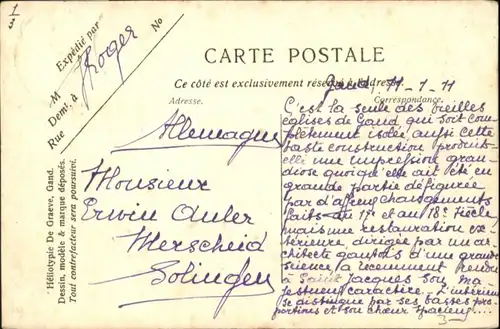 1/3
M Expédié par
Demt. à Roger
Rue No
CARTE POSTALE
Ce côté est exclusivement réservé à l'adresse.
Adresse. Correspondance.
Gand, 11-1-11
Allemagne
Monsieur
Erwin Auler
Merscheid
Solingen
C'est la seule des vieilles
églises de Gand, qui soit com-
plètement isolée, aussi cette
vaste construction produit-
elle une impression gran-
diose quoiqu'elle ait été, en
grande partie défigurée
par d'affreux changements
faits au 17e et au 18e siècle
mais une restauration ex-
térieure, dirigée par un ar-
chitecte gantois d'une grande
science, a récemment rendu
à Saint Jacques son ma-
jestueux caractère. L'intérieur
se distingue par ses basses pro-
portions et son chœur spacieux
3
Héliotypie De Graeve, Gand.
Dessin, modèle & marque déposés.
Tout contrefacteur sera poursuivi.